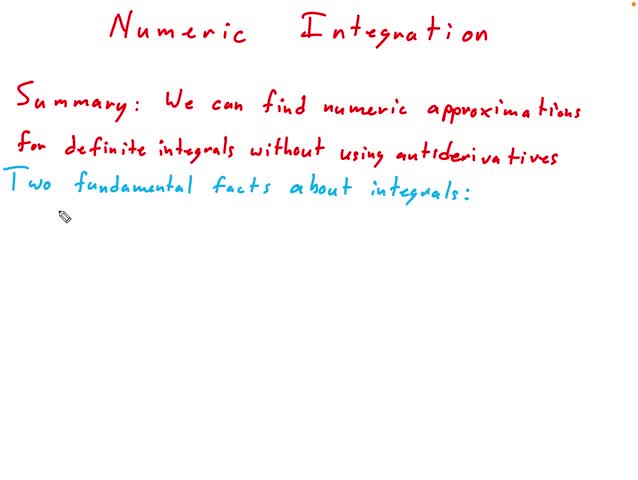 Numeric Integration
Summary: We can find numeric approximations
for definite integrals without using antiderivatives
Two fundamental facts about integrals: